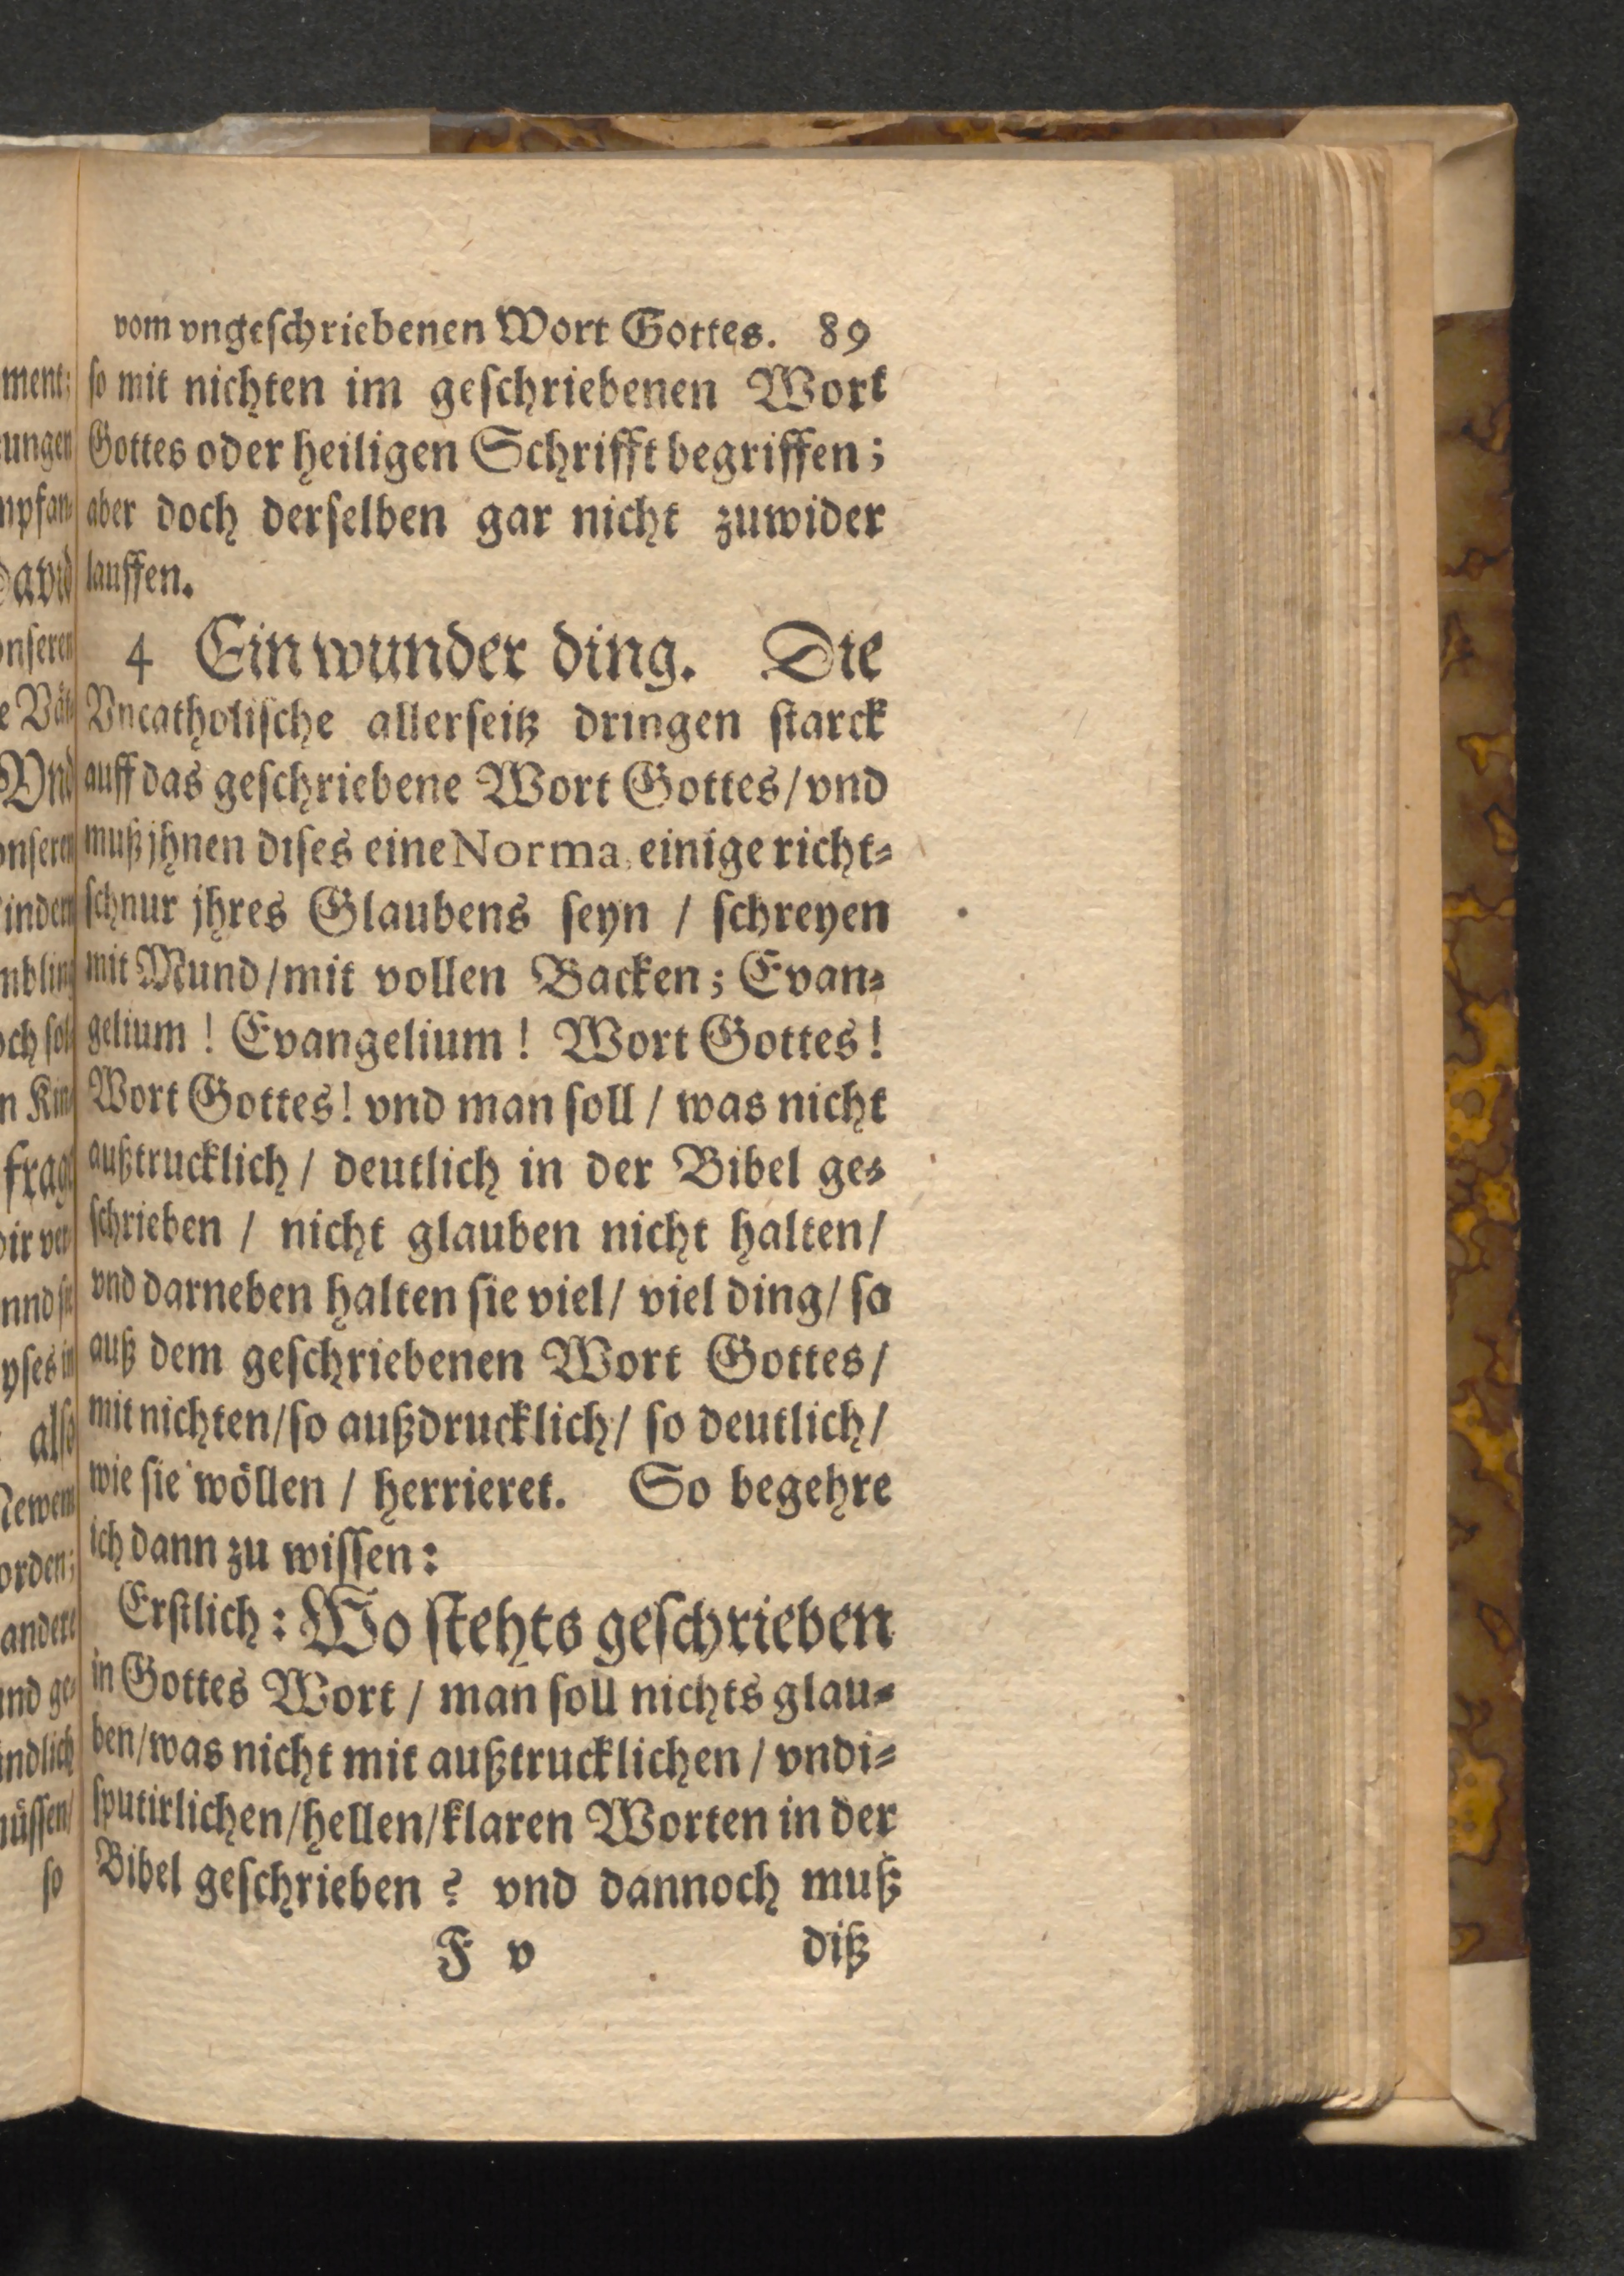 vom vngeſchriebenen Wort Gottes. 89
ſo mit nichten im geſchriebenen Wort
Gottes oder heiligen Schrifft begriffen;
aber doch derſelben gar nicht zuwider
lauffen.
4 Ein wunder ding. Die
Vncatholiſche allerſeitz dringen ſtarck
auff das geſchriebene Wort Gottes/ vnd
muß jhnen diſes eine Norma einige richt⸗
ſchnur jhres Glaubens ſeyn / ſchreyen
mit Mund/ mit vollen Backen; Evan⸗
gelium ! Evangelium ! Wort Gottes!
Wort Gottes! vnd man ſoll / was nicht
außtrucklich / deutlich in der Bibel ge⸗
ſchrieben / nicht glauben nicht halten/
vnd darneben halten ſie viel/ viel ding/ ſo
auß dem geſchriebenen Wort Gottes/
mit nichten/ ſo außdrucklich/ ſo deutlich/
wie ſie wöllen / herrieret. So begehre
ich dann zu wiſſen:
Erſtlich: Wo ſtehts geſchrieben
in Gottes Wort / man ſoll nichts glau⸗
ben/ was nicht mit außtrucklichen / vndi⸗
ſputirlichen/ hellen/ klaren Worten in der
Bibel geſchrieben ? vnd dannoch muß
F v diß